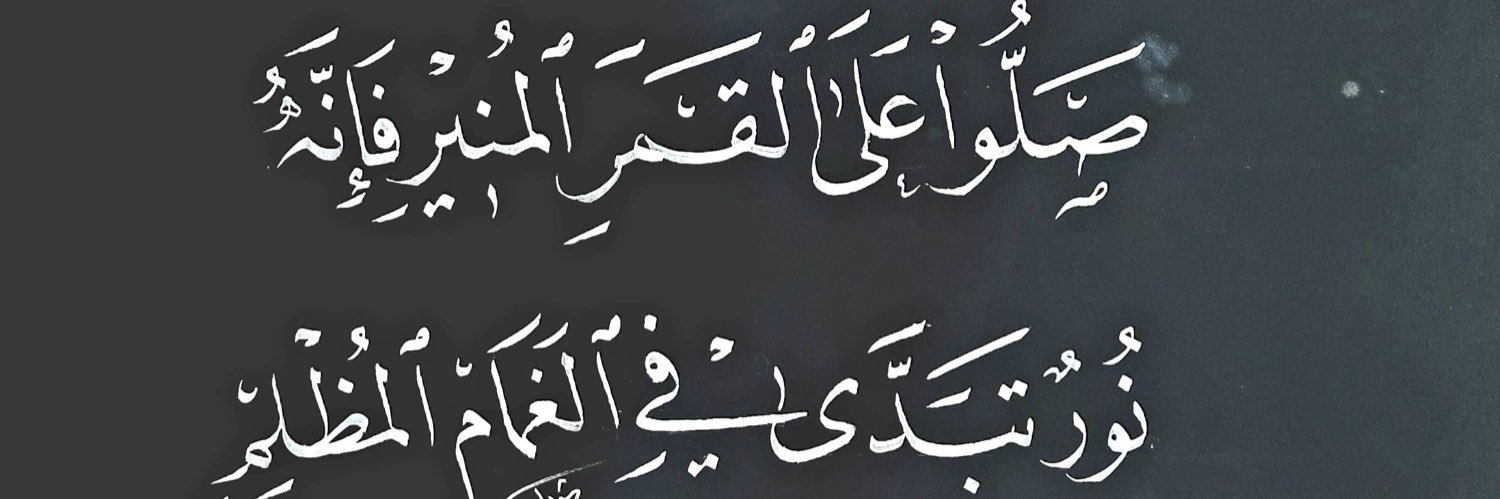 صَلُّوا عَلَى ٱلقَمَرِ ٱلمُنِيْرِ فَإِنَّهُ
نُورٌ تَبَدَّى فِي ٱلغَمَامِ ٱلمُظْلِمِ